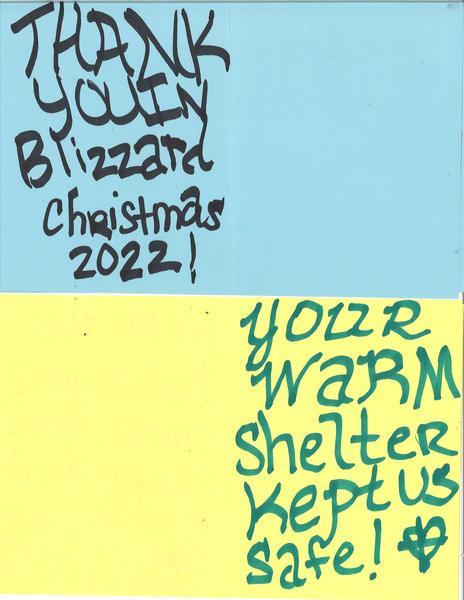 THANK
YOU IN
Blizzard
Christmas
2022!
YOUR
WARM
Shelter
Kept US
Safe!